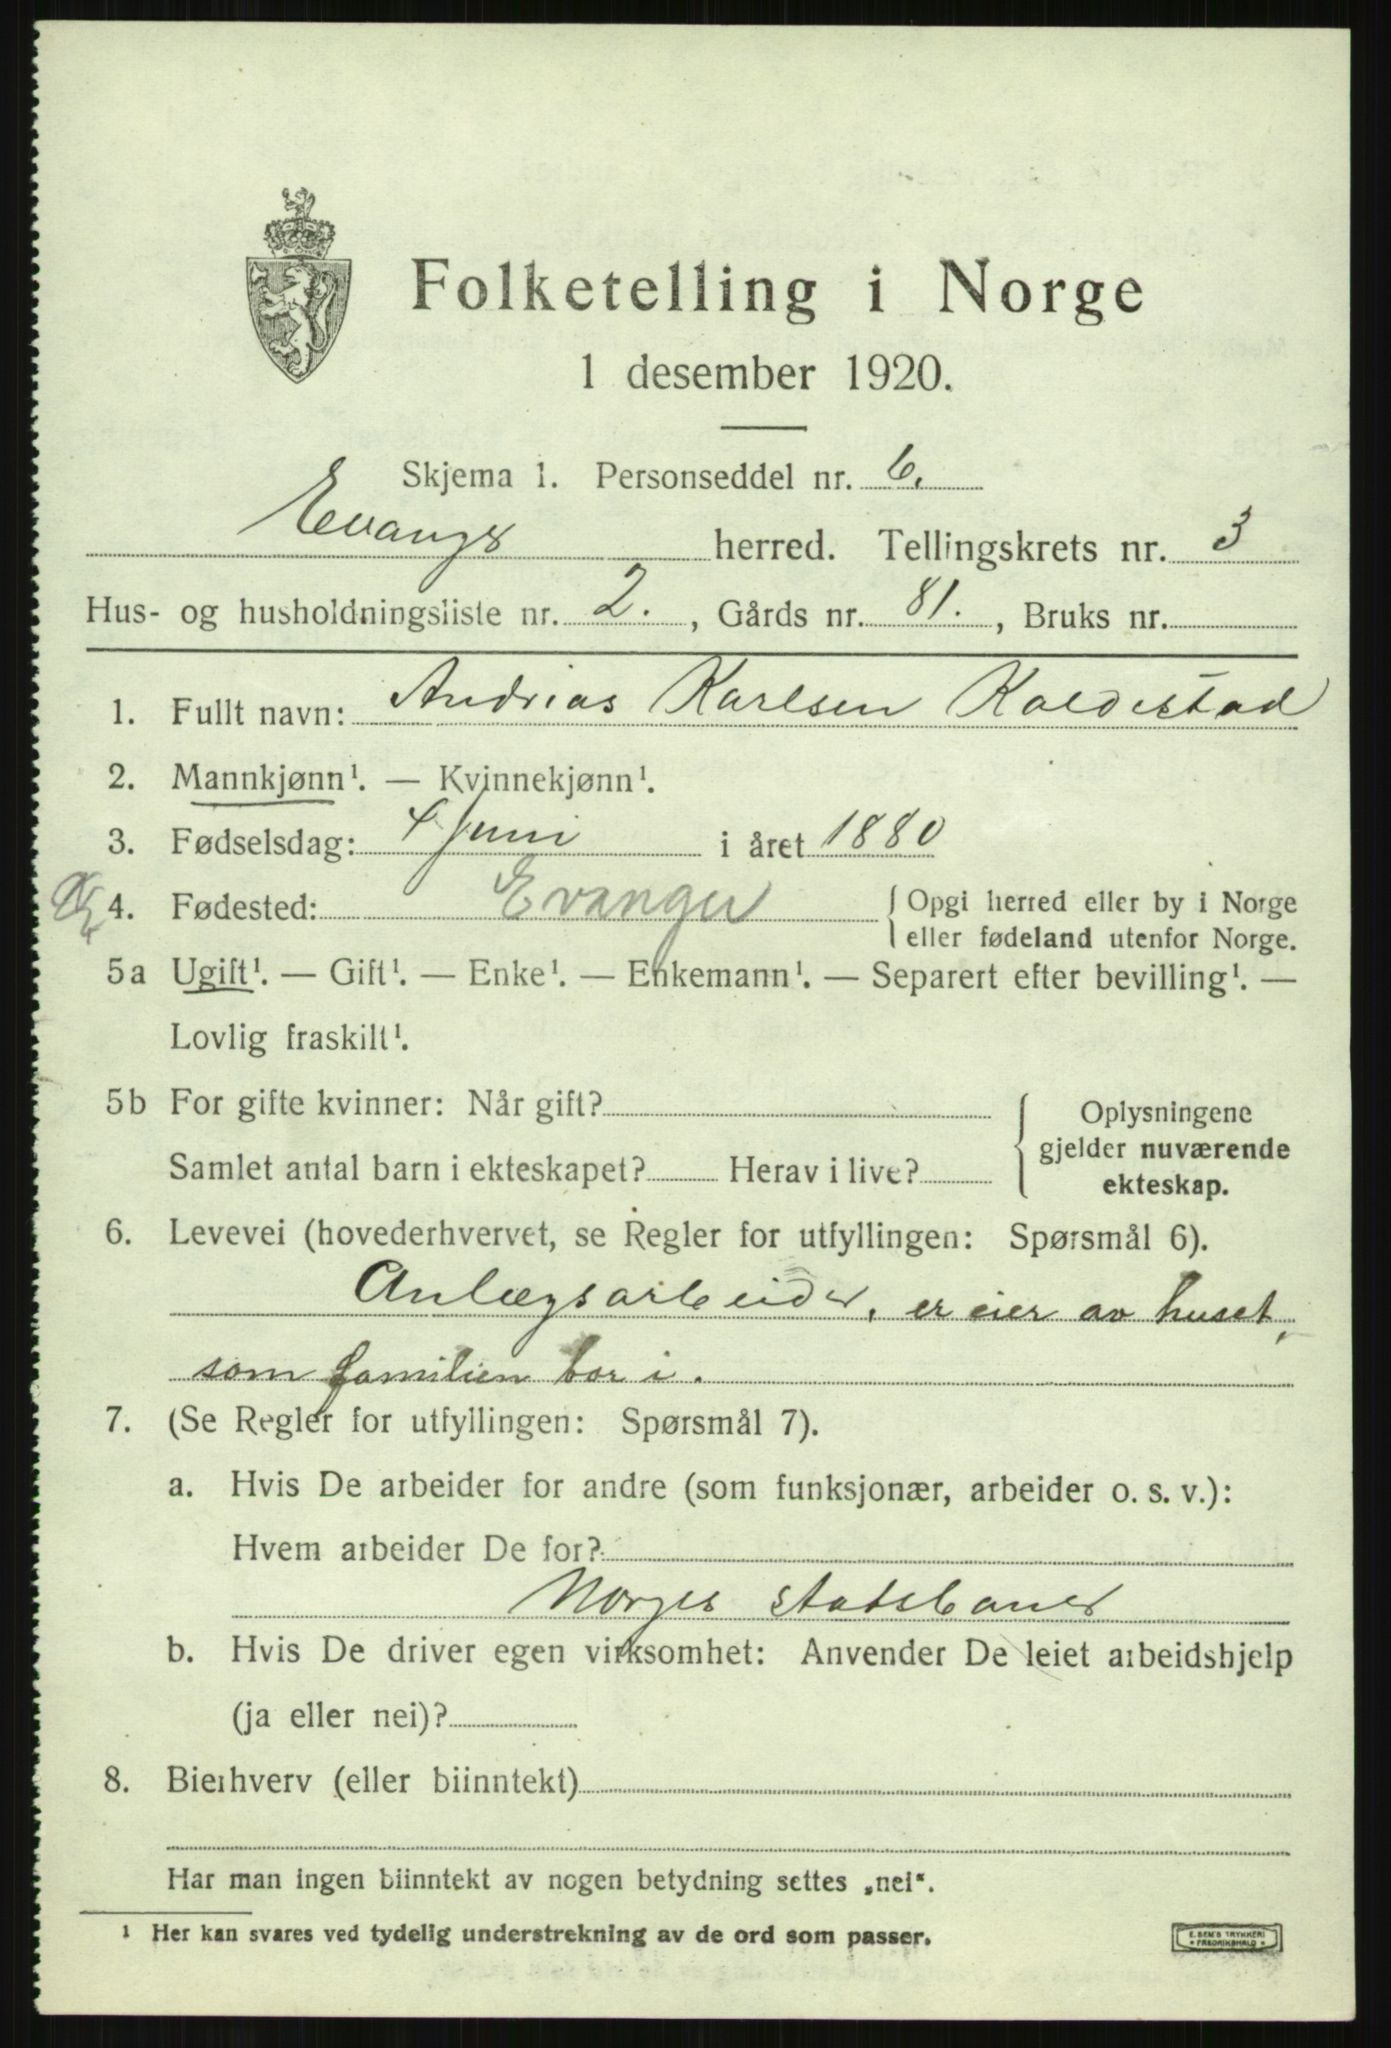 Folketelling i Norge
1 desember 1920.
Skjema 1. Personseddel nr. 6.
Evangs herred. Tellingskrets nr. 3
Hus- og husholdningsliste nr. 2. , Gårds nr. 81. , Bruks nr.
1. Fullt navn: Andrias Karlsen Kaldestad
2. Mannkjønn¹. — Kvinnekjønn¹.
3. Fødselsdag: 4 juni i året 1880
4. Fødested: Evanger { Opgi herred eller by i Norge
eller fødeland utenfor Norge.
5a Ugift¹. — Gift¹. — Enke¹. — Enkemann¹. — Separert efter bevilling¹. —
Lovlig fraskilt¹.
5b For gifte kvinner: Når gift?
Samlet antal barn i ekteskapet? Herav i live?
{ Oplysningene
gjelder nuværende
ekteskap.
6. Levevei (hovederhvervet, se Regler for utfyllingen: Spørsmål 6).
Anlægsarbeider, er eier av huset,
som familien bor i.
7. (Se Regler for utfyllingen: Spørsmål 7).
a. Hvis De arbeider for andre (som funksjonær, arbeider o. s. v.):
Hvem arbeider De for?
Norges statsbaner
b. Hvis De driver egen virksomhet: Anvender De leiet arbeidshjelp
(ja eller nei)?
8. Bierhverv (eller biinntekt)
Har man ingen biinntekt av nogen betydning settes „nei“.
¹ Her kan svares ved tydelig understrekning av de ord som passer.
E. SEM'S TRYKKERI
* FREDRIKSHALD *